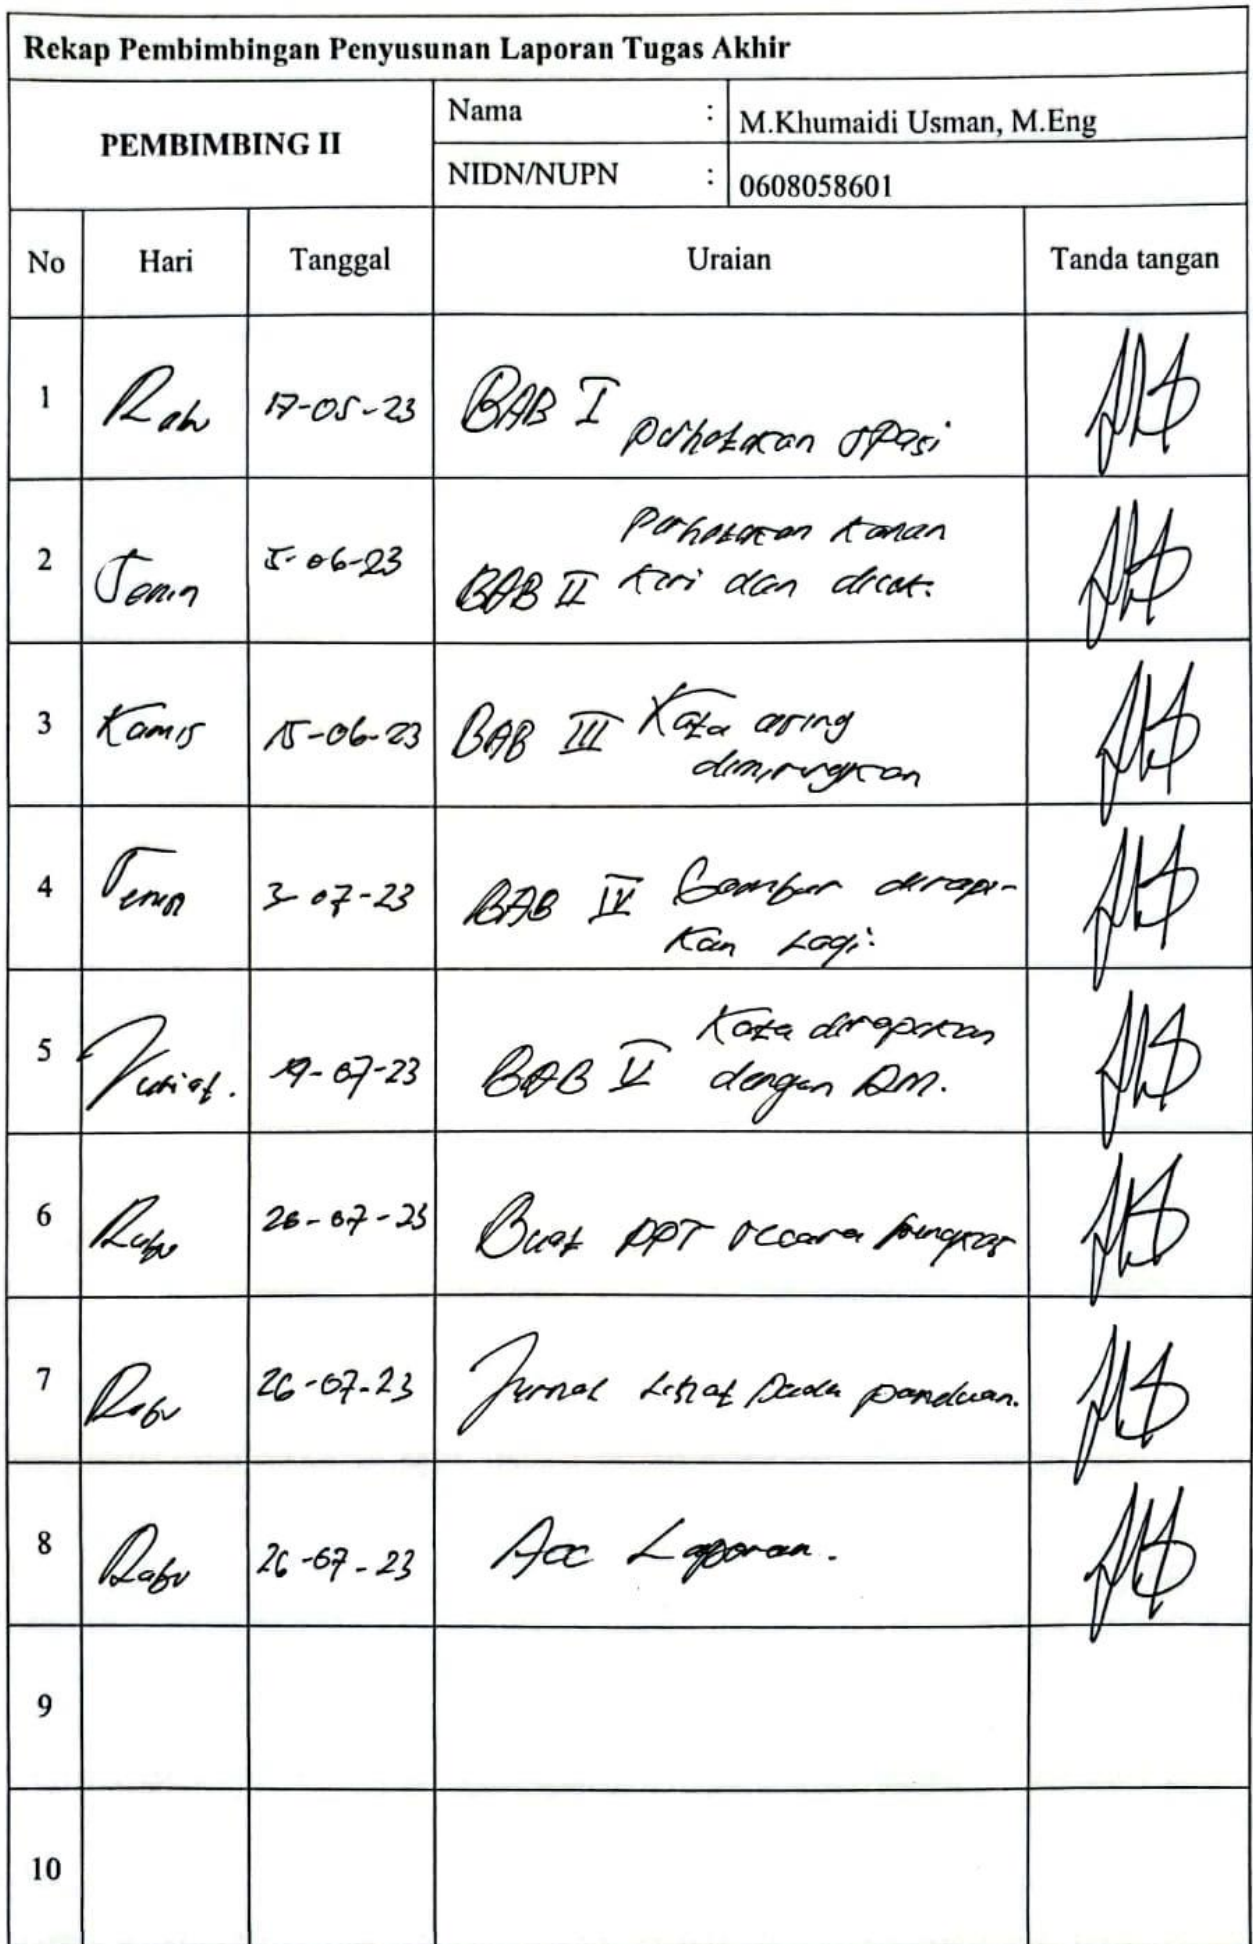 Rekap Pembimbingan Penyusunan Laporan Tugas Akhir
PEMBIMBING II
Nama : M.Khumaidi Usman, M.Eng
NIDN/NUPN : 0608058601
No Hari Tanggal Uraian Tanda tangan
1 Rabu 17-05-23 BAB I perhatikan spasi
2 Senin 5-06-23 BAB II perhatikan kanan
kiri dan dicek.
3 Kamis 15-06-23 BAB III Kata asing
dimiringkan
4 Senin 3-07-23 BAB IV Gambar dirapi-
kan Lagi.
5 -07-23 BAB V Kata dirapikan
dengan RM.
6 Rabu 26-07-23 Buat PPT secara
7 Rabu 26-07-23 Jurnal Lihat pada panduan.
8 Rabu 26-07-23 Acc Laporan.
9
10